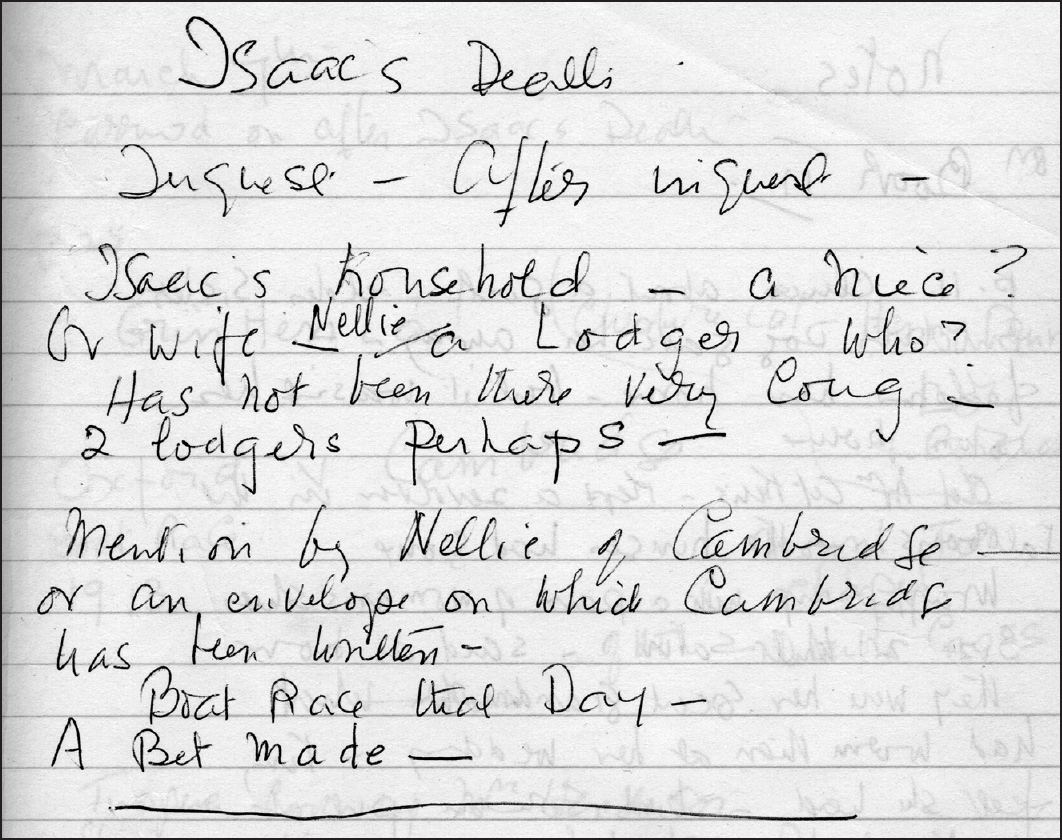 Isaac's Death
Inquest - After inquest -
Isaac's household - a niece?
Or wife - Nellie a Lodger who?
Has not been there very long -
2 lodgers perhaps -
Mention by Nellie of Cambridge -
or an envelope on which Cambridge
has been written -
Boat Race that Day -
A Bet made -